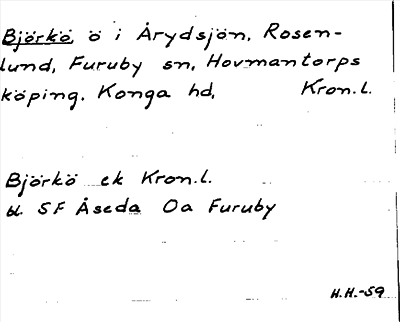 Björkö, ö i Årydsjön, Rosen-
lund, Furuby sn, Hovmantorps
köping. Konga hd, Kron.l.
Björkö ek Kron.l.
bl. SF Åseda Oa Furuby
H.H.-59